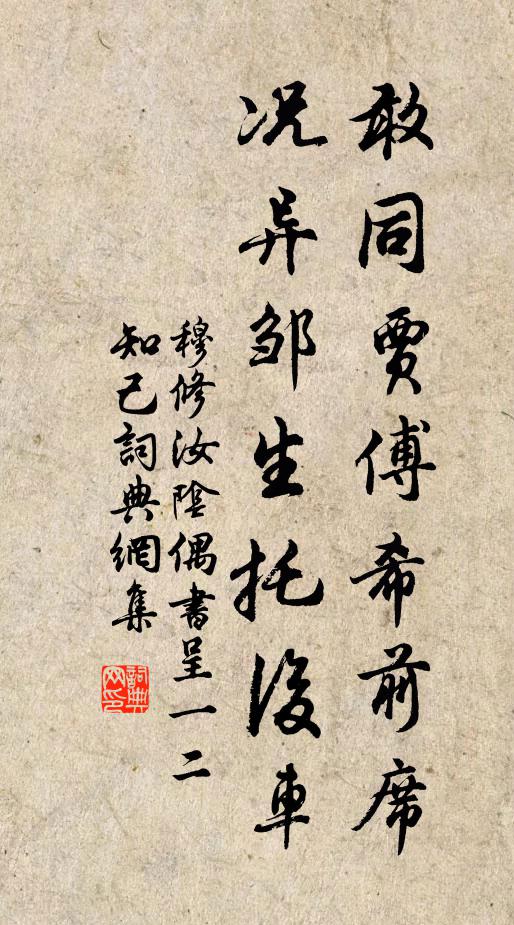 敢同賈傅希前席
况异邹生托後車
穆修汝陰偶書呈一二
知己詞典網集
詞典
网印